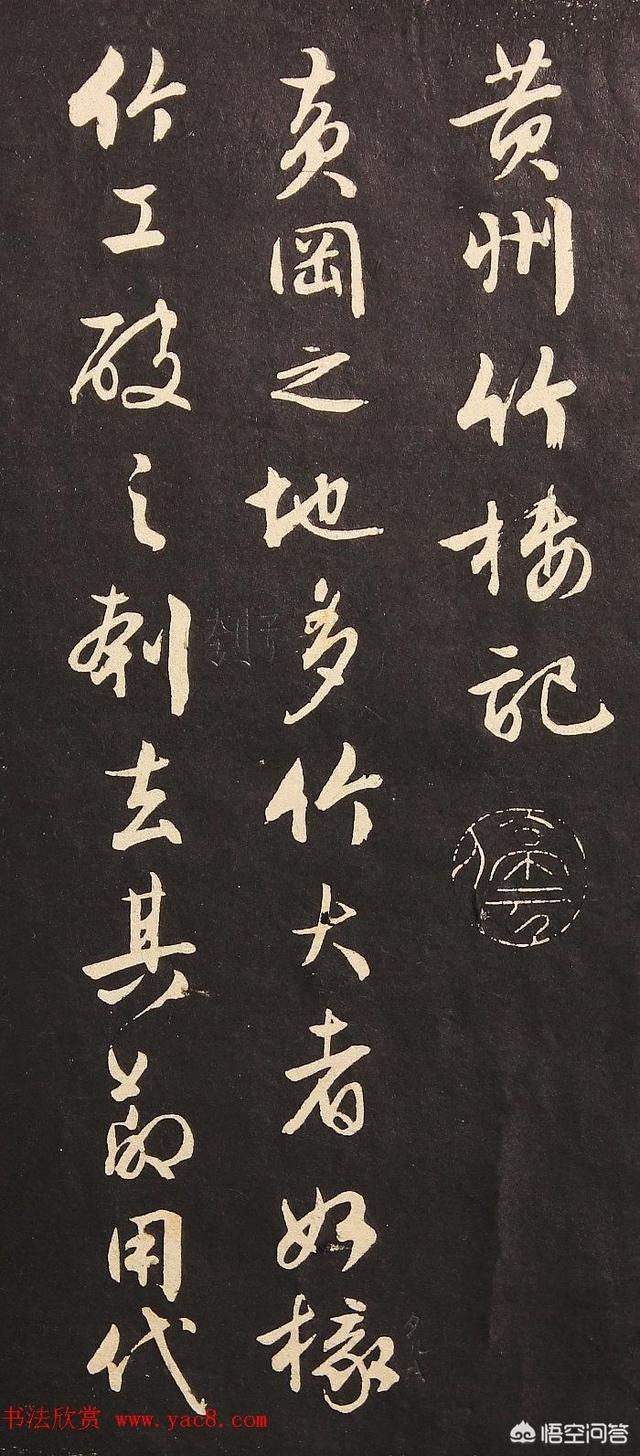 黄州竹楼記
黄岡之地多竹大者如椽
竹工破之刳去其節用代
书法欣赏 www.yac8.com
悟空问答